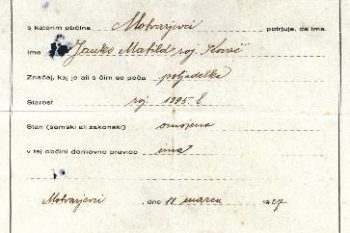 s katerim občina Motvarjevci potrjuje, da ima
Ime Janko Matild roj. Kovač
Značaj, kaj je ali s čim se peča poljedelka
Starost roj. 1895. l.
Stan (samski ali zakonski) omožena
v tej občini domovno pravico ima
Motvarjevci, dne 12 marca 1927